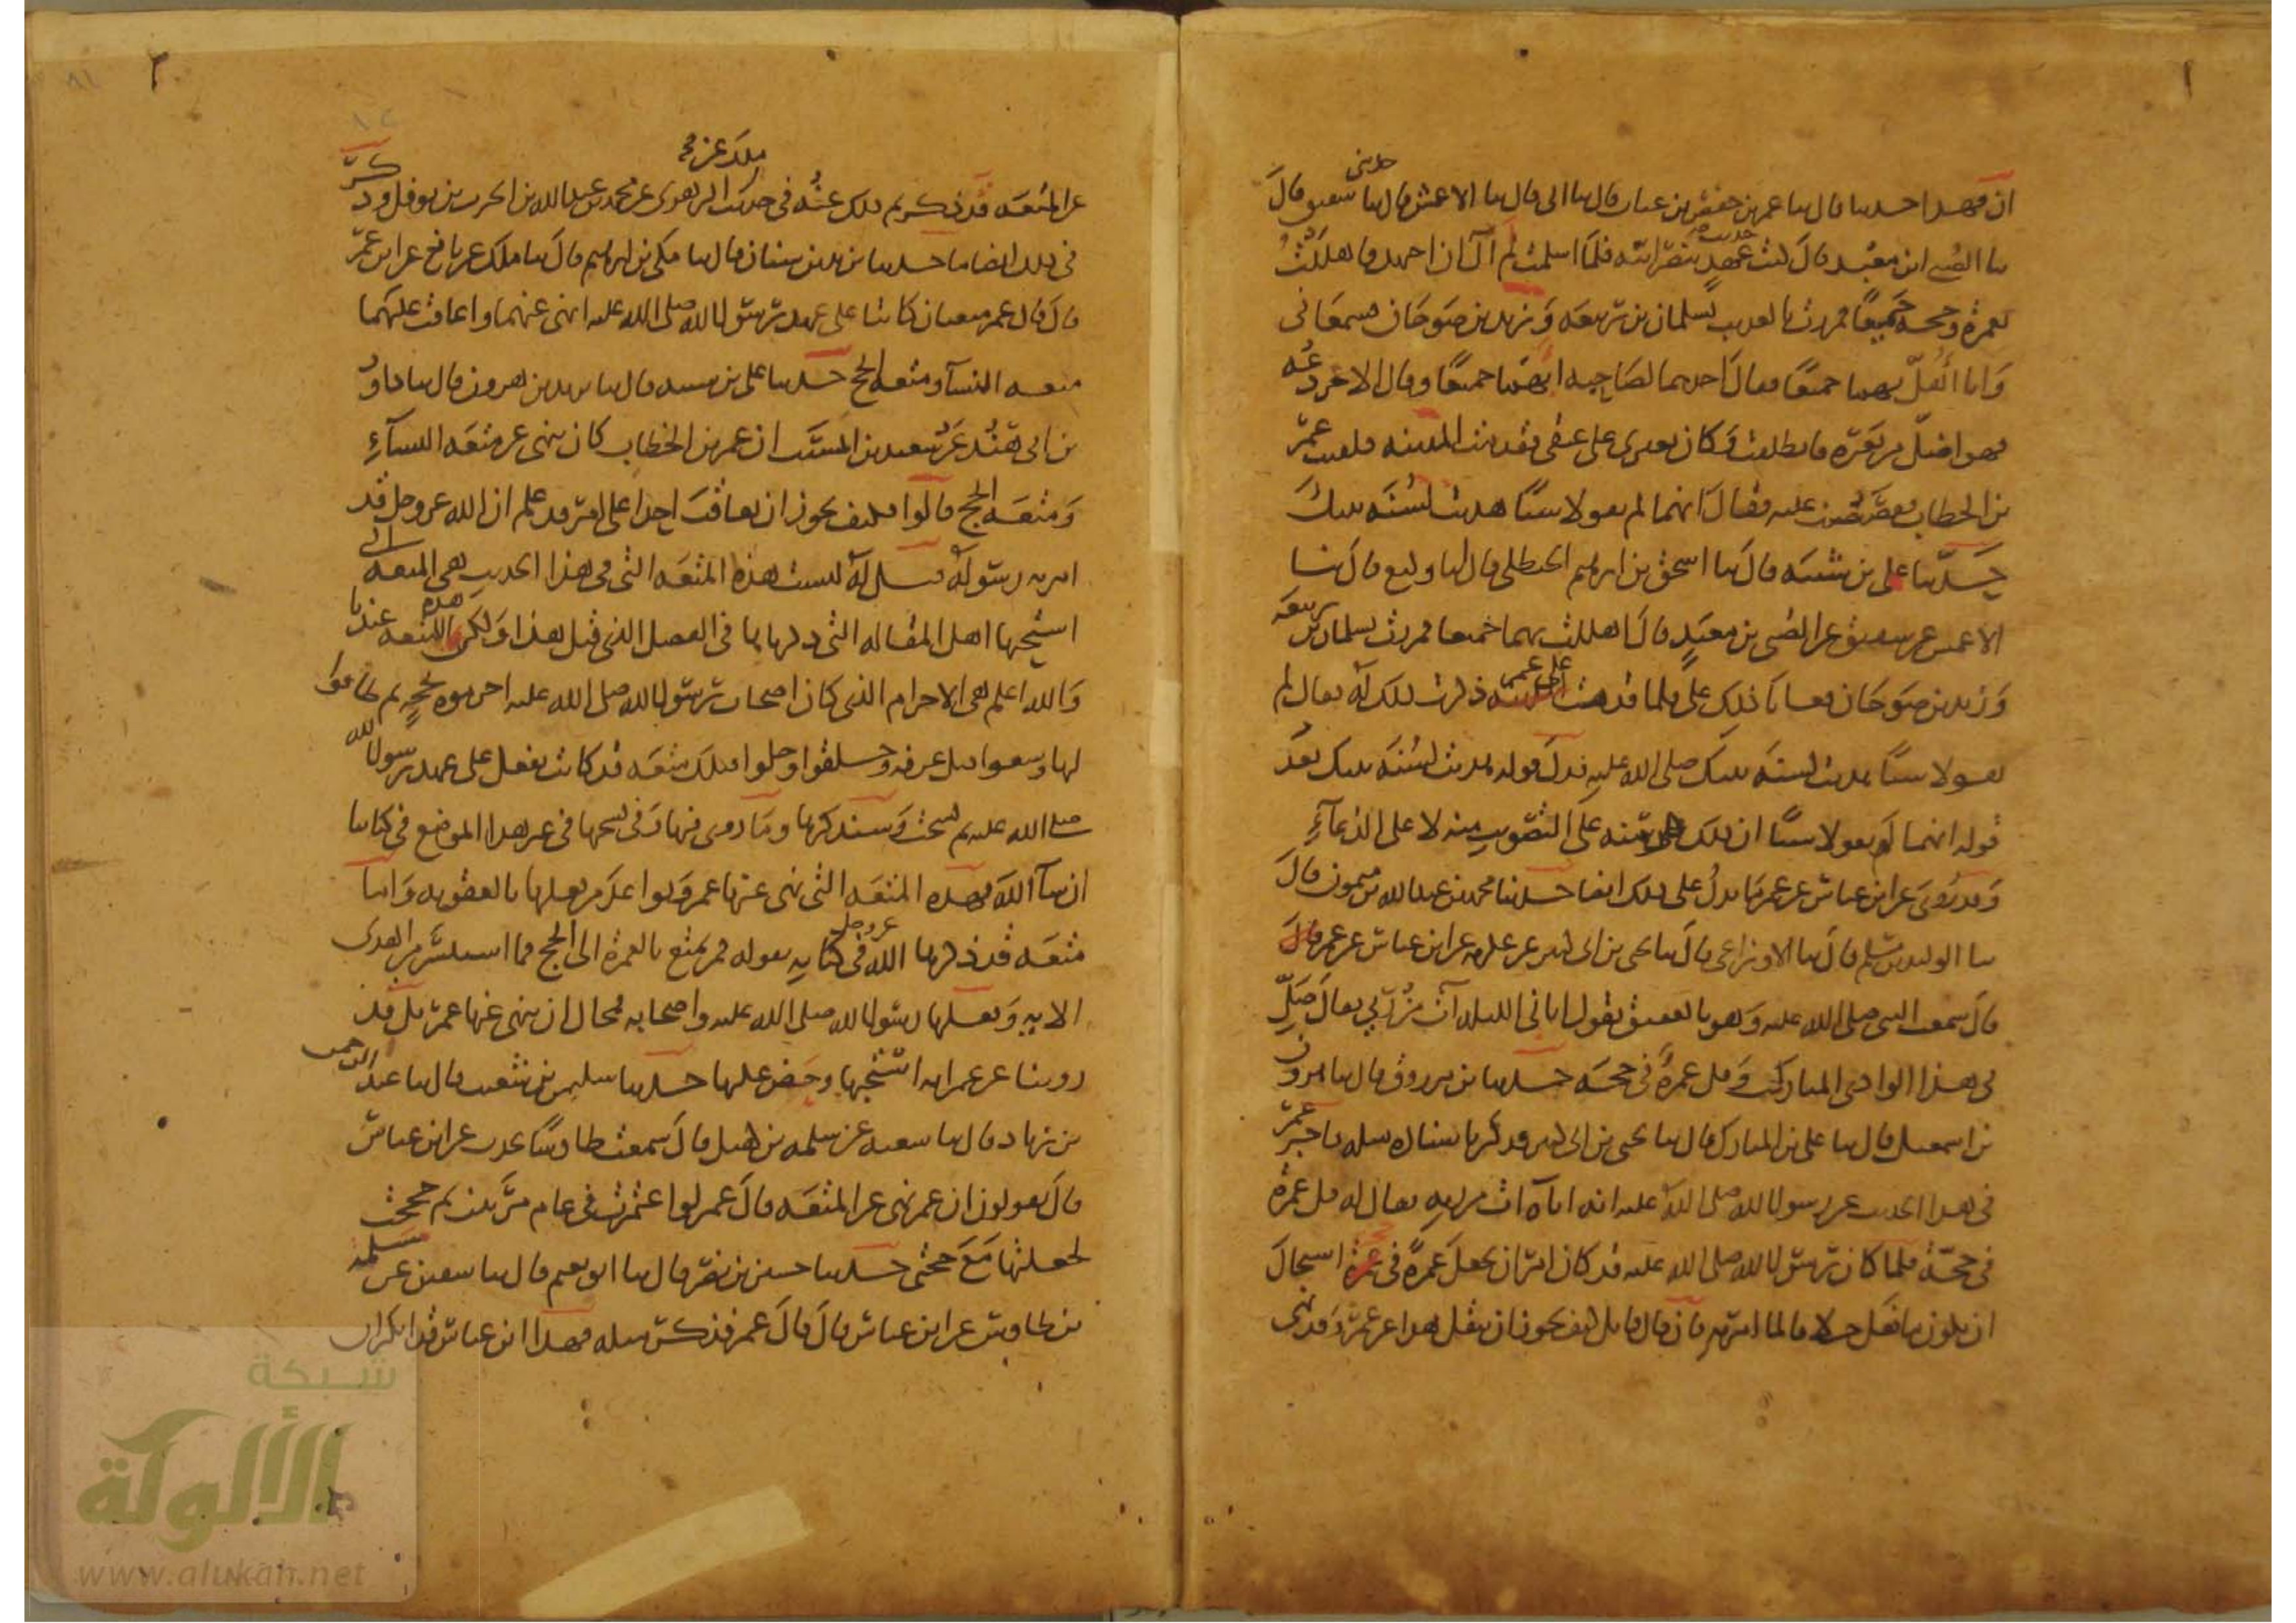 ١
حدثنى
ان فهدا حدثنا قال ثنا عمر بن حفص بن غياث قال ثنا ابى قال ثنا الاعمش قال شقيق قال
ثنا الصبي ابن معبد قال كنت حديث عهد بنصرانية فلما اسلمت لم آل ان اجتهد فاهللت
بعمرة وحجة جميعا فمررت بالعذيب بسلمان بن ربيعة وزيد بن صوحان فسمعانى
وانا أهل بهما جميعا فقال احدهما لصاحبه ابهما جميعا وقال الاخر دعه
فهو اضل من بعيره فانطلقت وكان بعيرى على عنقى فقدمت المدينة فلقيت عمر
بن الخطاب فقصصت عليه فقال انهما لم يقولا شيئا هديت لسنة نبيك
حدثنا على بن شيبة قال ثنا اسحق بن ابرهيم الحنظلى قال انا وكيع قال ثنا
الاعمش عن شقيق عن الصبى بن معبد قال اهللت بهما جميعا فمررت بسلمان بن ربيعة
وزيد بن صوحان فعابا ذلك على فلما قدمت على عمر ذكرت ذلك له فقال لم
يقولا شيئا هديت لسنة نبيك صلى الله عليه فدل قوله هديت لسنة نبيك بعد
قوله انهما لم يقولا شيئا ان ذلك منه على التصويب منه لا على الدعاء
وقد روى عن ابن عباس عن عمر ما يدل على ذلك ايضا حدثنا محمد بن عبد الله بن ميمون قال
ثنا الوليد بن مسلم قال ثنا الاوزاعى قال ثنا يحيى بن ابى كثير عن عكرمة عن ابن عباس عن عمر قال
قال سمعت النبى صلى الله عليه وهو بالعقيق يقول اتانى الليلة آت من ربى فقال صل
فى هذا الوادى المبارك وقل عمرة فى حجة حدثنا بن مرزوق قال ثنا هرون
بن اسمعيل قال ثنا على بن المبارك قال ثنا يحيى بن ابى كثير فذكر باسناده مثله فاخبر عمر
فى هذا الحديث عن رسول الله صلى الله عليه انه اتاه آت من ربه فقال له قل عمرة
فى حجة فلما كان رسول الله صلى الله عليه قد كان امر ان يجعل عمرة فى حجة استحال
ان يكون ما فعل خلافا لما امر به فان قال قائل كيف يجوز ان يقبل هذا عن عمر وقد نهى
٢
ملك عن
عن المتعة قد ذكرتم ذلك عنه فى حديث الزهرى عن محمد بن عبد الله بن الحرث بن نوفل وذكر
فى ذلك ايضا ما حدثنا يزيد بن سنان قال ثنا مكى بن ابرهيم قال ثنا ملك عن نافع عن ابن عمر
قال قال عمر متعتان كانتا على عهد رسول الله صلى الله عليه انهى عنهما واعاقب عليهما
متعة النساء ومتعة الحج حدثنا على بن شيبة قال ثنا يزيد بن هرون قال ثنا داود
بن ابى هند عن سعيد بن المسيب ان عمر بن الخطاب كان ينهى عن متعة النساء
ومتعة الحج قالوا فكيف يجوز ان يعاقب احدا على امر قد علم ان الله عز وجل قد
امر به رسوله قيل له ليست هذه المتعة التى فى هذا الحديث هى المتعة التى
استحبها اهل المقالة التى ذكرناها فى الفصل الذى قبل هذا ولكن هذه المتعة عندنا
والله اعلم هى الاحرام الذى كان اصحاب رسول الله صلى الله عليه احرموه بحجة ثم طافوا
لها وسعوا قبل عرفة وحلقوا وحلوا فتلك متعة قد كانت تفعل على عهد رسول الله
صلى الله عليه ثم نسخت وسنذكرها وما روى فيها وفى نسخها فى غير هذا الموضع فى كتابنا
ان شاء الله فهذه المتعة التى نهى عنها عمر وتواعد من فعلها بالعقوبة واما
متعة قد ذكرها الله عز وجل فى كتابه بقوله فمن تمتع بالعمرة الى الحج فما استيسر من الهدى
الاية وفعلها رسول الله صلى الله عليه واصحابه فمحال ان ينهى عنها عمر بل قد
روينا عن عمر انه استحبها وحض عليها حدثنا سليمن بن شعيب قال ثنا عبد الرحمن
بن زياد قال ثنا شعبة عن سلمة بن كهيل قال سمعت طاوسا يحدث عن ابن عباس
قال يقولون ان عمر نهى عن المتعة قال عمر لو اعتمرت فى عام مرتين ثم حججت
لجعلتها مع حجتى حدثنا حسين بن نصر قال ثنا ابو نعيم قال ثنا سفين عن سلمة
بن طاوس عن ابن عباس قال قال عمر فذكر مثله فهذا ابن عباس قد انكر ان
شبكة
الألوكة
www.alukah.net